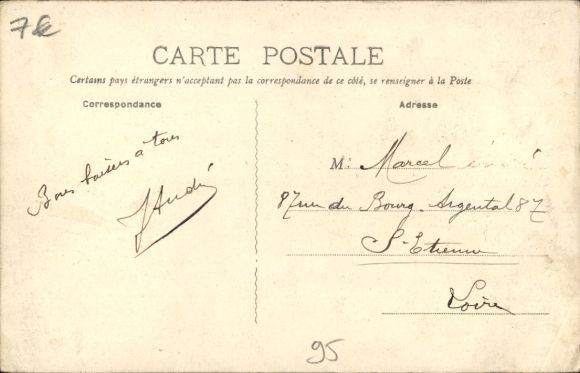 7€
CARTE POSTALE
Certains pays étrangers n'acceptant pas la correspondance de ce côté, se renseigner à la Poste
Correspondance
Adresse
Bons baisers à tous
André
M. Marcel
87 rue du Bourg-Argental 87
St-Etienne
Loire
95